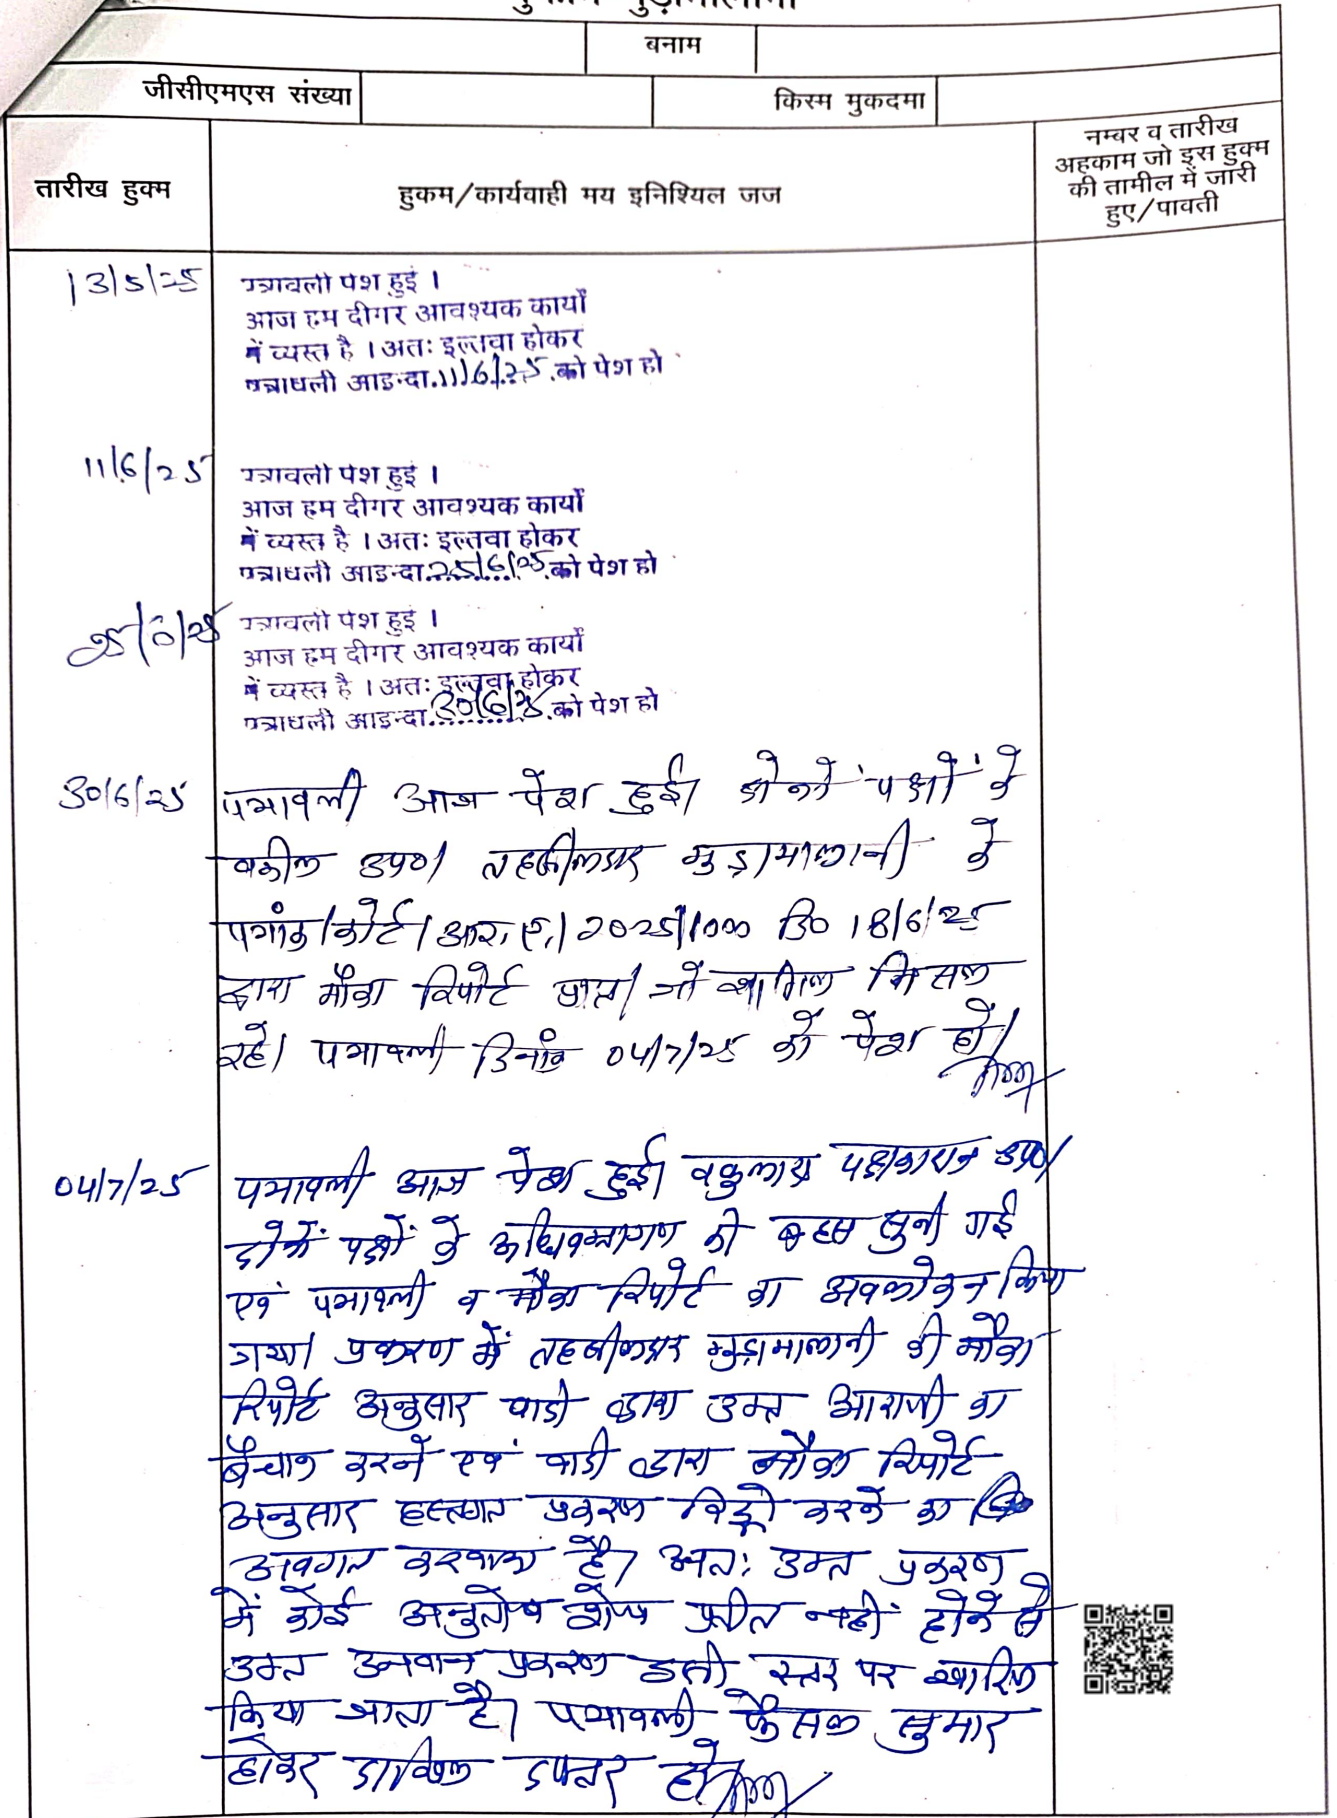 बनाम
जीसीएमएस संख्या किस्म मुकदमा
तारीख हुक्म
हुकम/कार्यवाही मय इनिश्यिल जज
नम्बर व तारीख
अहकाम जो इस हुक्म
की तामील में जारी
हुए/पावती
13/5/25 पत्रावली पेश हुई ।
आज हम दीगर आवश्यक कार्यों
में व्यस्त है । अतः इल्तवा होकर
पत्रावली आइन्दा 11/6/25 को पेश हो
11/6/25 पत्रावली पेश हुई ।
आज हम दीगर आवश्यक कार्यों
में व्यस्त है । अतः इल्तवा होकर
पत्रावली आइन्दा 25/6/25 को पेश हो
25/6/25 पत्रावली पेश हुई ।
आज हम दीगर आवश्यक कार्यों
में व्यस्त है । अतः इल्तवा होकर
पत्रावली आइन्दा 30/6/25 को पेश हो
30/6/25 पत्रावली आज पेश हुई। दोनों पक्षों के
वकील उप०। तहसीलदार गुड़ामालानी के
पत्रांक/कोर्ट/आर.ए./2025/1000 दि० 18/6/25
द्वारा मौका रिपोर्ट प्राप्त। जो शामिल मिसल
रहे। पत्रावली दिनांक 04/7/25 को पेश हो।
04/7/25 पत्रावली आज पेश हुई। वकुलाय पक्षकारान उप०।
दोनों पक्षों के अधिवक्तागण की बहस सुनी गई
एवं पत्रावली व मौका रिपोर्ट का अवलोकन किया
गया। प्रकरण में तहसीलदार गुड़ामालानी की मौका
रिपोर्ट अनुसार वादी द्वारा उक्त आराजी का
बैचान करने एवं वादी द्वारा मौका रिपोर्ट
अनुसार हस्तगत प्रकरण विड्रो करने का
अवगत करवाया है। अतः उक्त प्रकरण
में कोई अनुतोष शेष प्रतीत नहीं होने से
उक्त उनवान प्रकरण इसी स्तर पर खारिज
किया जाता है। पत्रावली फैसल सुमार
होकर दाखिल दफ्तर हो।